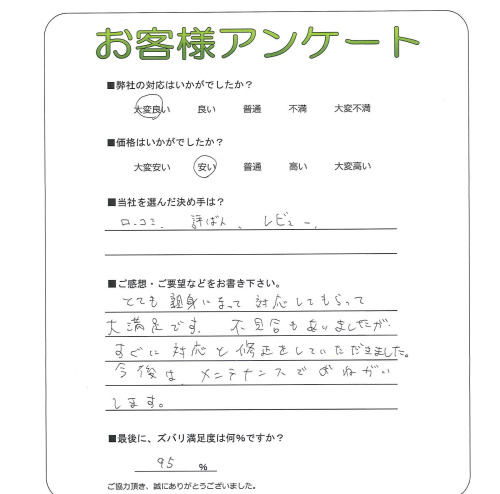 お客様アンケート
■弊社の対応はいかがでしたか？
大変良い 良い 普通 不満 大変不満
■価格はいかがでしたか？
大変安い 安い 普通 高い 大変高い
■当社を選んだ決め手は？
口コミ、評ばん、レビュー、
■ご感想・ご要望などをお書き下さい。
とても親身になって対応してもらって
大満足です。不具合もありましたが、
すぐに対応と修正をしていただきました。
今後は、メンテナンスでおねがい
します。
■最後に、ズバリ満足度は何％ですか？
95 %
ご協力頂き、誠にありがとうございました。